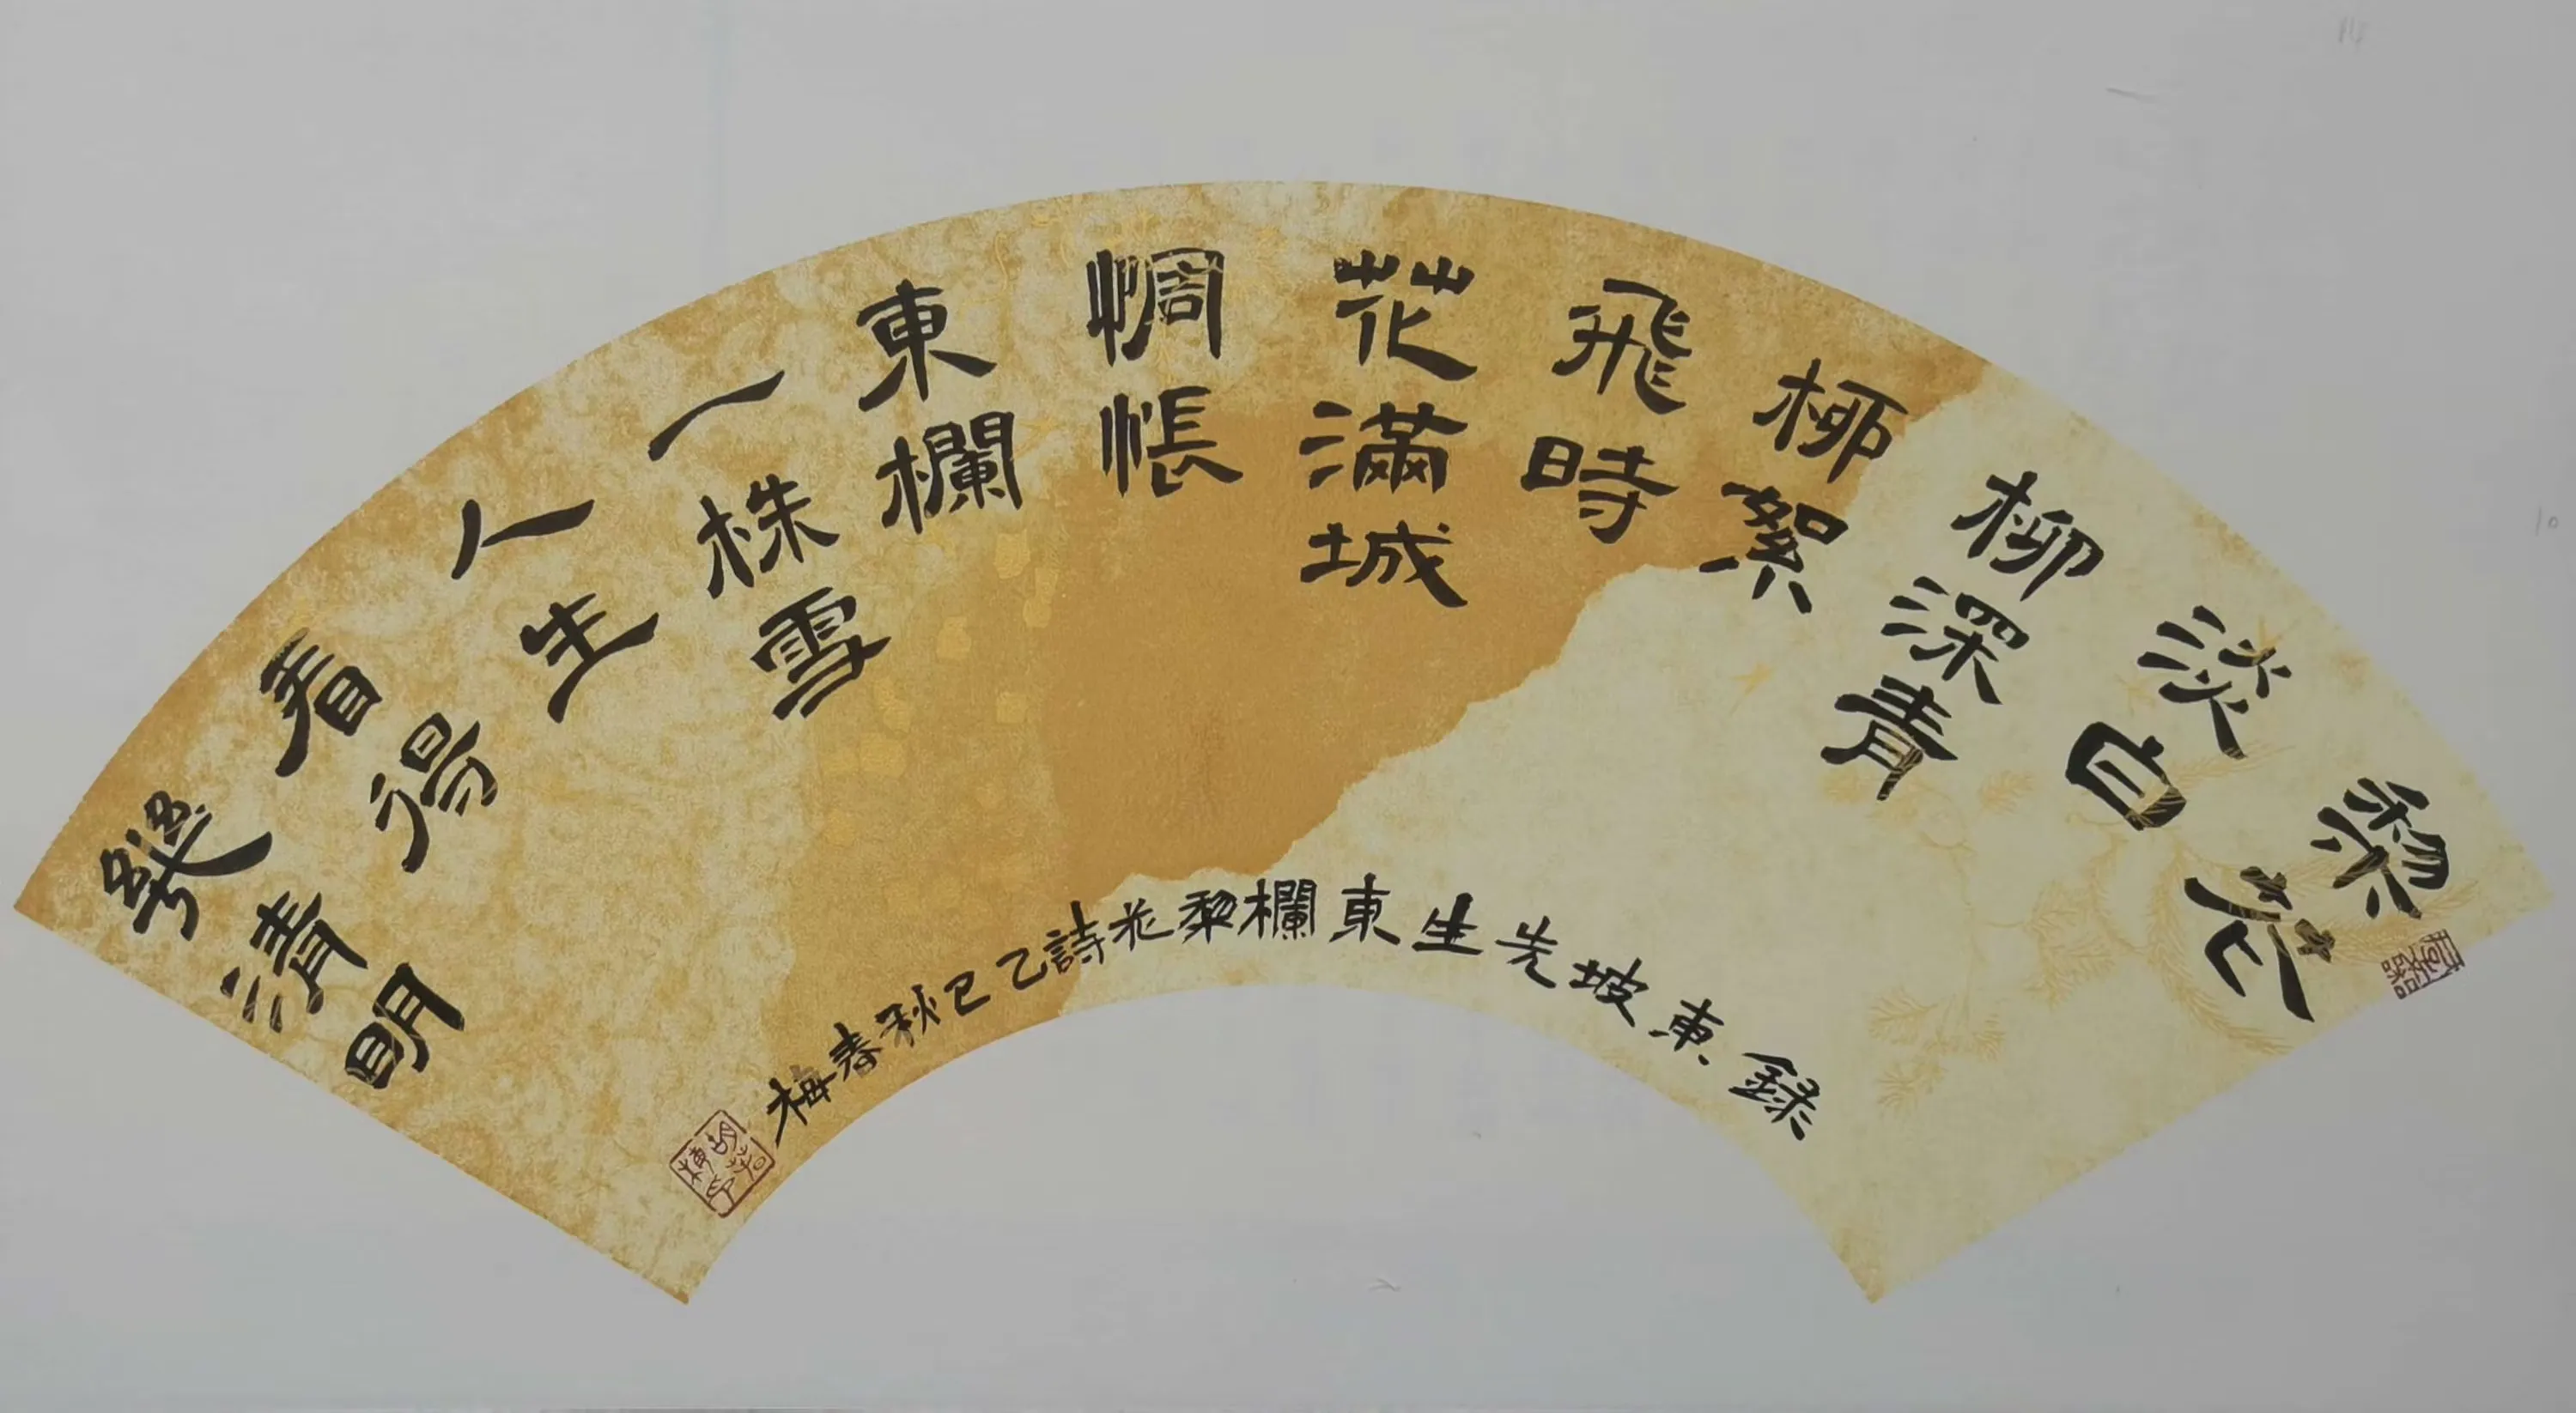 棃花
淡白
柳深青
柳絮
飛時
花滿城
惆悵
東欄
一株雪
人生
看得
幾清明
錄東坡先生東欄棃花詩乙巳秋春梅
胡春梅印